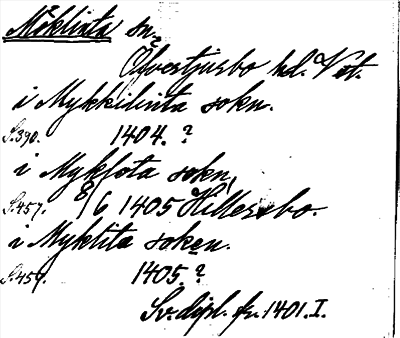 Möklinta sn.
Öfvertjurbo hd. Vet.
i Mykkilinta sokn.
S.390. 1404.?
i Myklota sokn,
S.457. 8/6 1405 Hillersbo.
i Myklita soken.
S.459. 1405.?
Sv. dipl. fr. 1401. I.